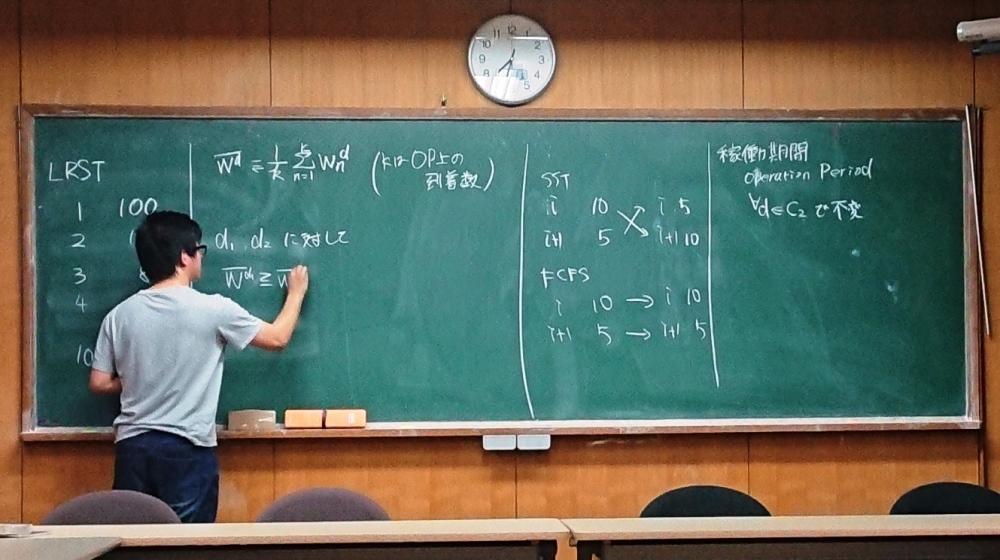 LRST
1 100
2 1
3 8
4
10
W̅ᵈ ≡ 1/k Σₙ₌₁ᵏ Wₙᵈ (kはOP上の
到着数)
d₁, d₂ に対して
W̅ᵈ¹ ≥ W̅
SST
i 10 i 5
i+1 5 i+1 10
FCFS
i 10 → i 10
i+1 5 → i+1 5
稼働期間
Operation Period
∀d∈C₂ で不変
11 12 1
10 2
9 3
8 4
7 6 5